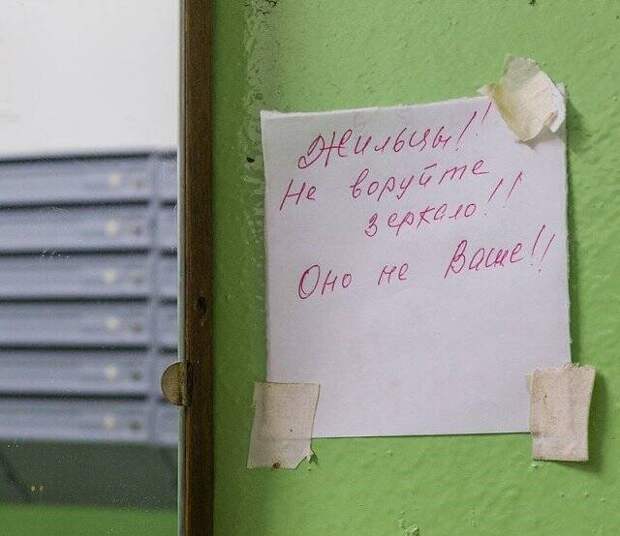 Жильцы!!
Не воруйте
зеркало!!
Оно не Ваше!!